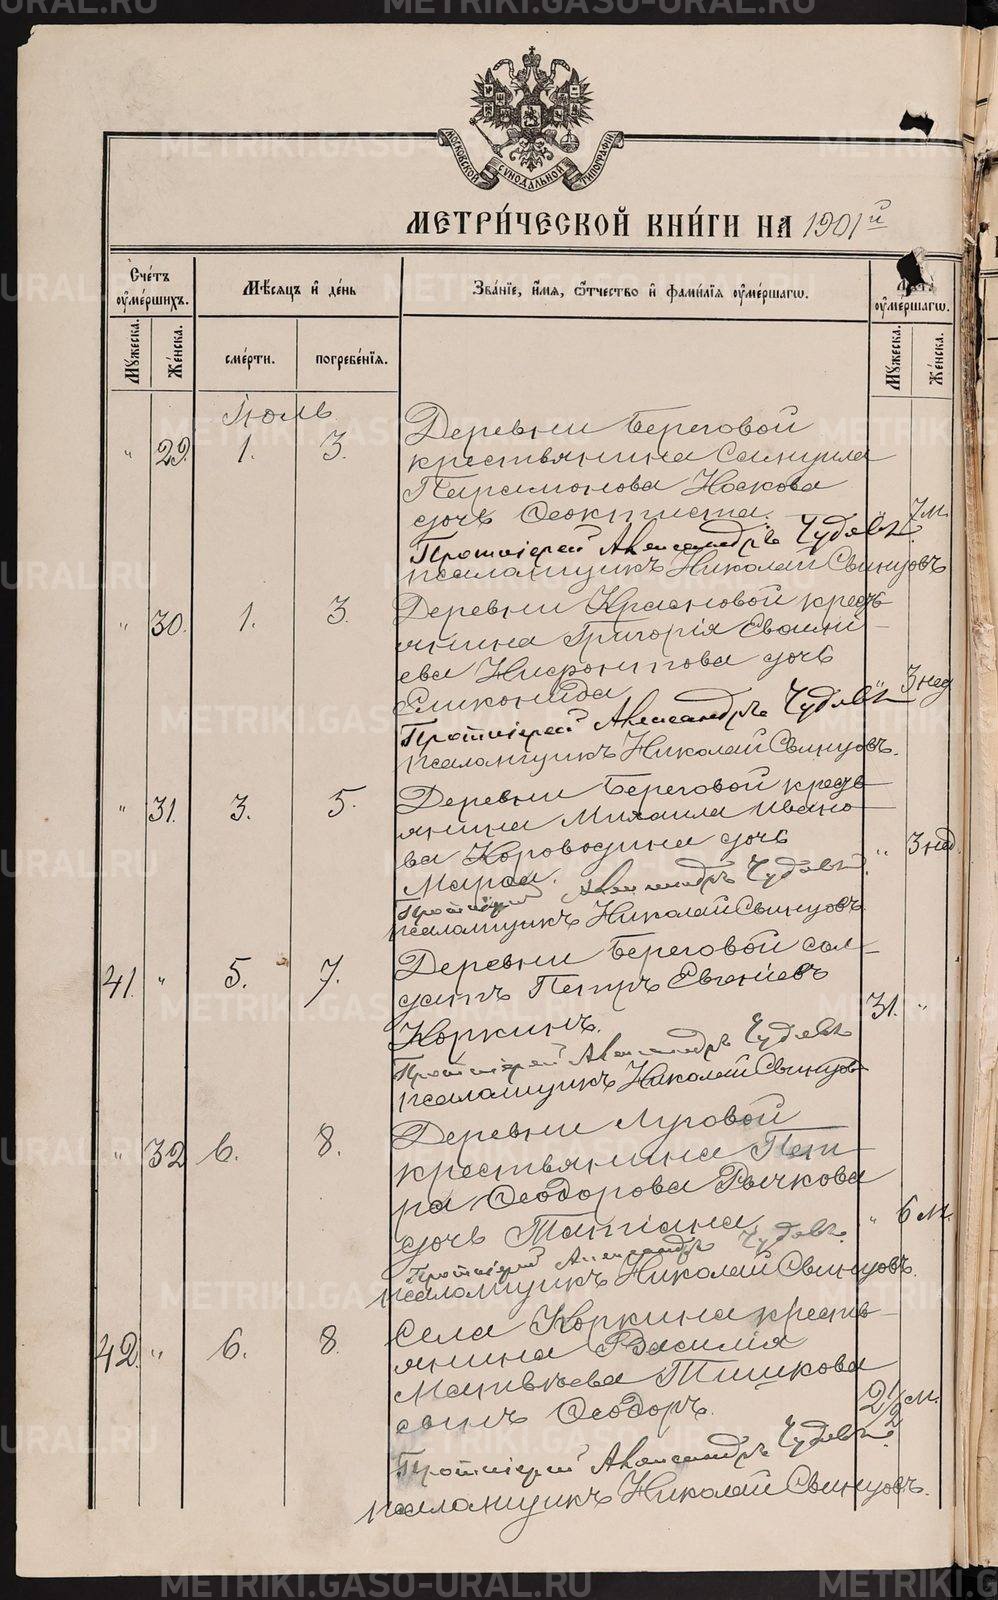 МОСКОВСКОЙ СѴНОДАЛЬНОЙ ТИПОГРАФІИ
МЕТРИ́ЧЕСКОЙ КНИ́ГИ НА 1901й
Сче́тъ оуме́ршихъ.
Мѣ́сяцъ и де́нь
Зва́нїе, и́мя, ѻ́тчество и фами́лїя оуме́ршагѡ.
оуме́ршагѡ.
Мꙋ́жеска.
Же́нска.
сме́рти.
погребе́нїя.
Мꙋ́жеска.
Же́нска.
Іюль
" 29. 1. 3. Деревни Береговой
крестьянина Самуила
Парамонова Носкова
дочь Ѳеоктиста. " 7 м.
Протоіерей Александръ Чудовъ
псаломщикъ Николай Свинцовъ
" 30. 1. 3. Деревни Красновой кресть
янина Григорія Евсині
ева Никонитова дочь
Еликонида " 3 нед
Протоіерей Александръ Чудовъ
псаломщикъ Николай Свинцовъ.
" 31. 3. 5. Деревни Береговой кресть
янина Михаила Ивано
ва Короводина дочь
Марѳа. " 3 нед.
Протоіерей Александръ Чудовъ
псаломщикъ Николай Свинцовъ
41. " 5. 7. Деревни Береговой сол
датъ Петръ Евгеніевъ
Коркинъ. 31. "
Протоіерей Александръ Чудовъ
псаломщикъ Николай Свинцовъ
" 32 6. 8. Деревни Луговой
крестьянина Пет
ра Ѳеодорова Рычкова
дочь Татіана " 6 м.
Протоіерей Александръ Чудовъ.
псаломщикъ Николай Свинцовъ.
42. " 6. 8. Села Коркина кресть
янина Василія
Матвѣева Тишкова
сынъ Ѳеодоръ. 2 1/2 м.
Протоіерей Александръ Чудовъ.
псаломщикъ Николай Свинцовъ.
METRIKI.GASO-URAL.RU